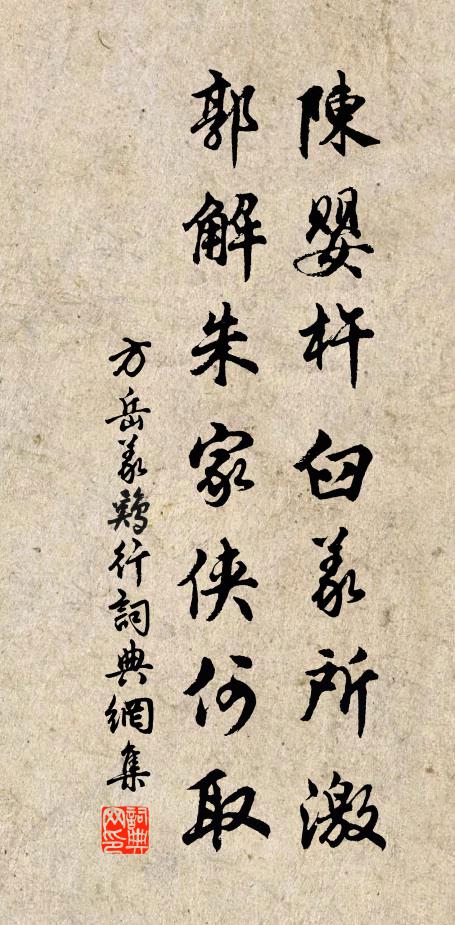 陳嬰杵臼義所激
郭解朱家俠何取
方岳義鶏行詞典網集
詞典網印